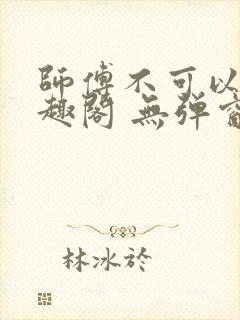 師傅不可以
趣閣 無彈窗
林冰於